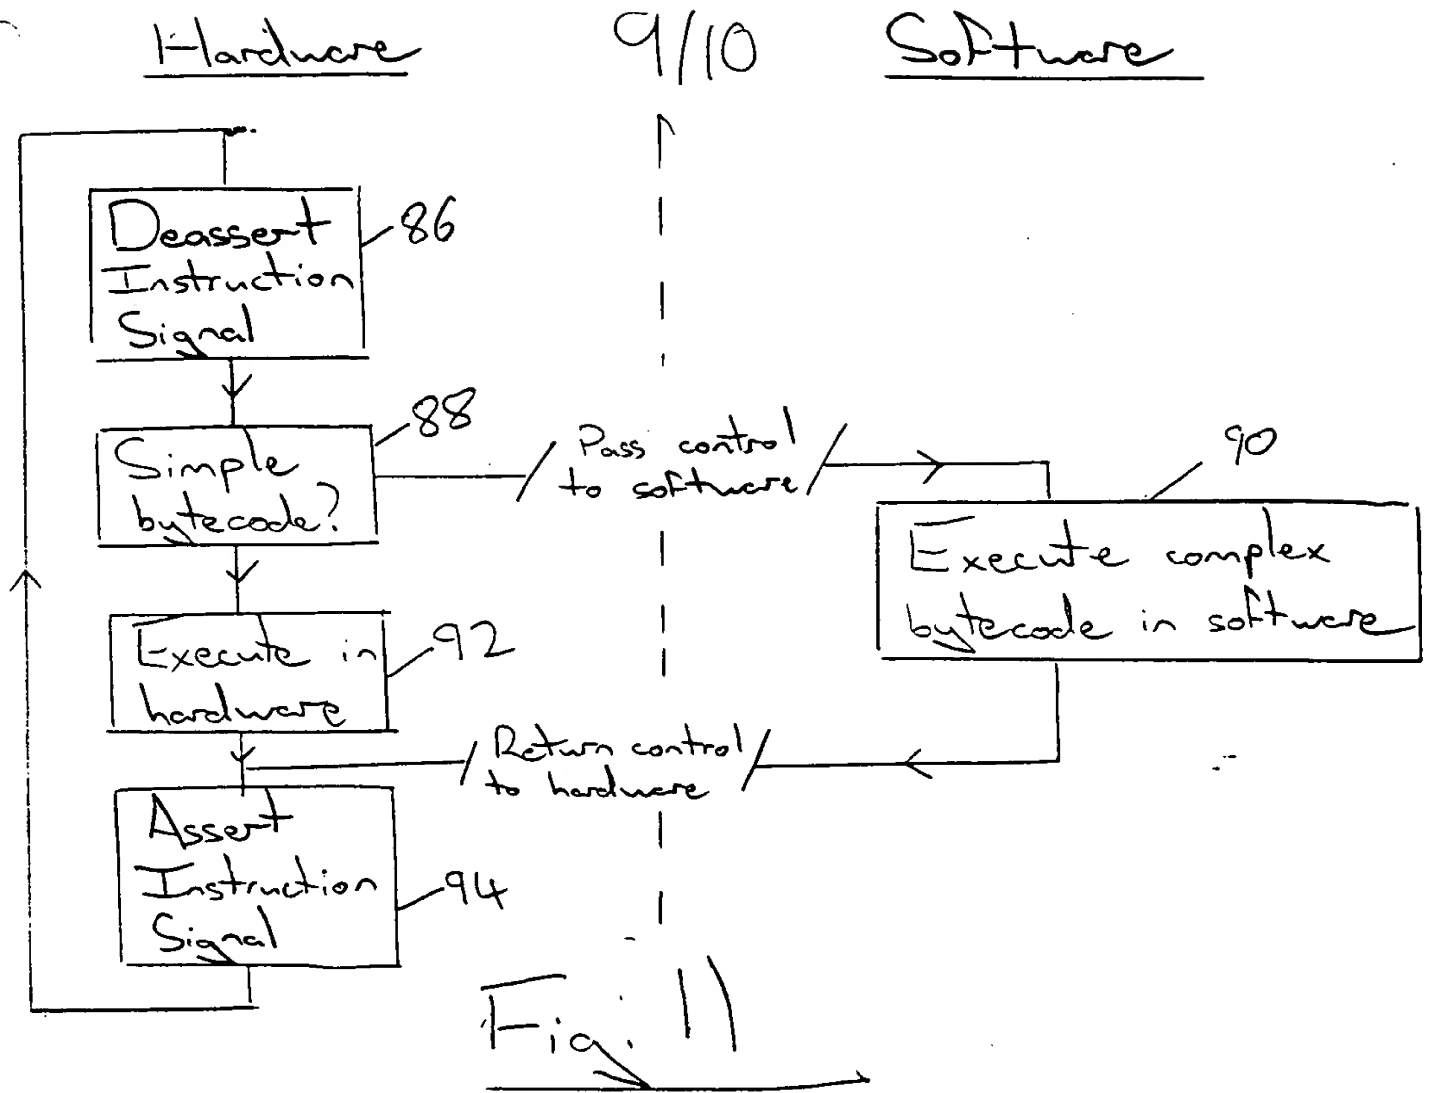 Hardware
9/10
Software
Deassert
Instruction
Signal
86
Simple
bytecode?
88
Pass control
to software
90
Execute complex
bytecode in software
Execute in
hardware
92
Return control
to hardware
Assert
Instruction
Signal
94
Fig. 11